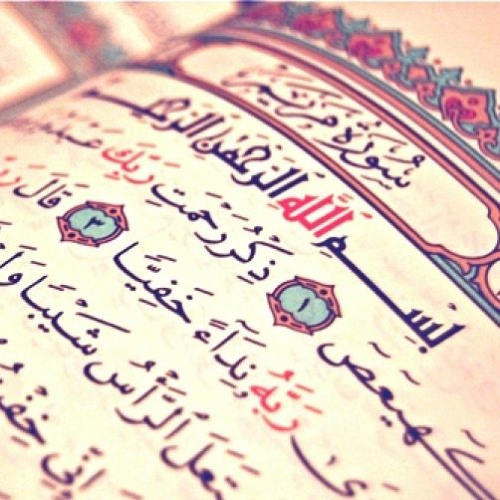 سُورَةُ مَرْيَمَ
بِسْمِ اللَّهِ الرَّحْمَٰنِ الرَّحِيمِ
كٓهيعٓصٓ ١ ذِكْرُ رَحْمَتِ رَبِّكَ
رَبَّهُ نِدَآءً خَفِيًّا ٣ قَالَ
ٱلرَّأْسُ شَيْبًا
وَإِنِّي